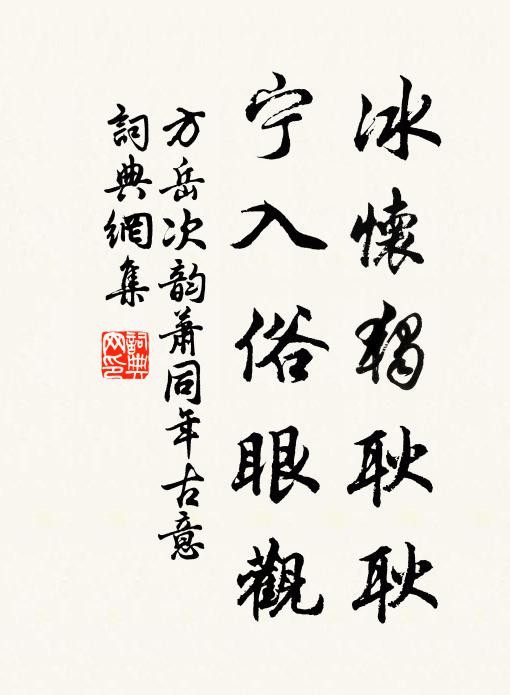 冰懷獨耿耿
宁入俗眼觀
方岳次韵蕭同年古意
詞典網集
詞典网印